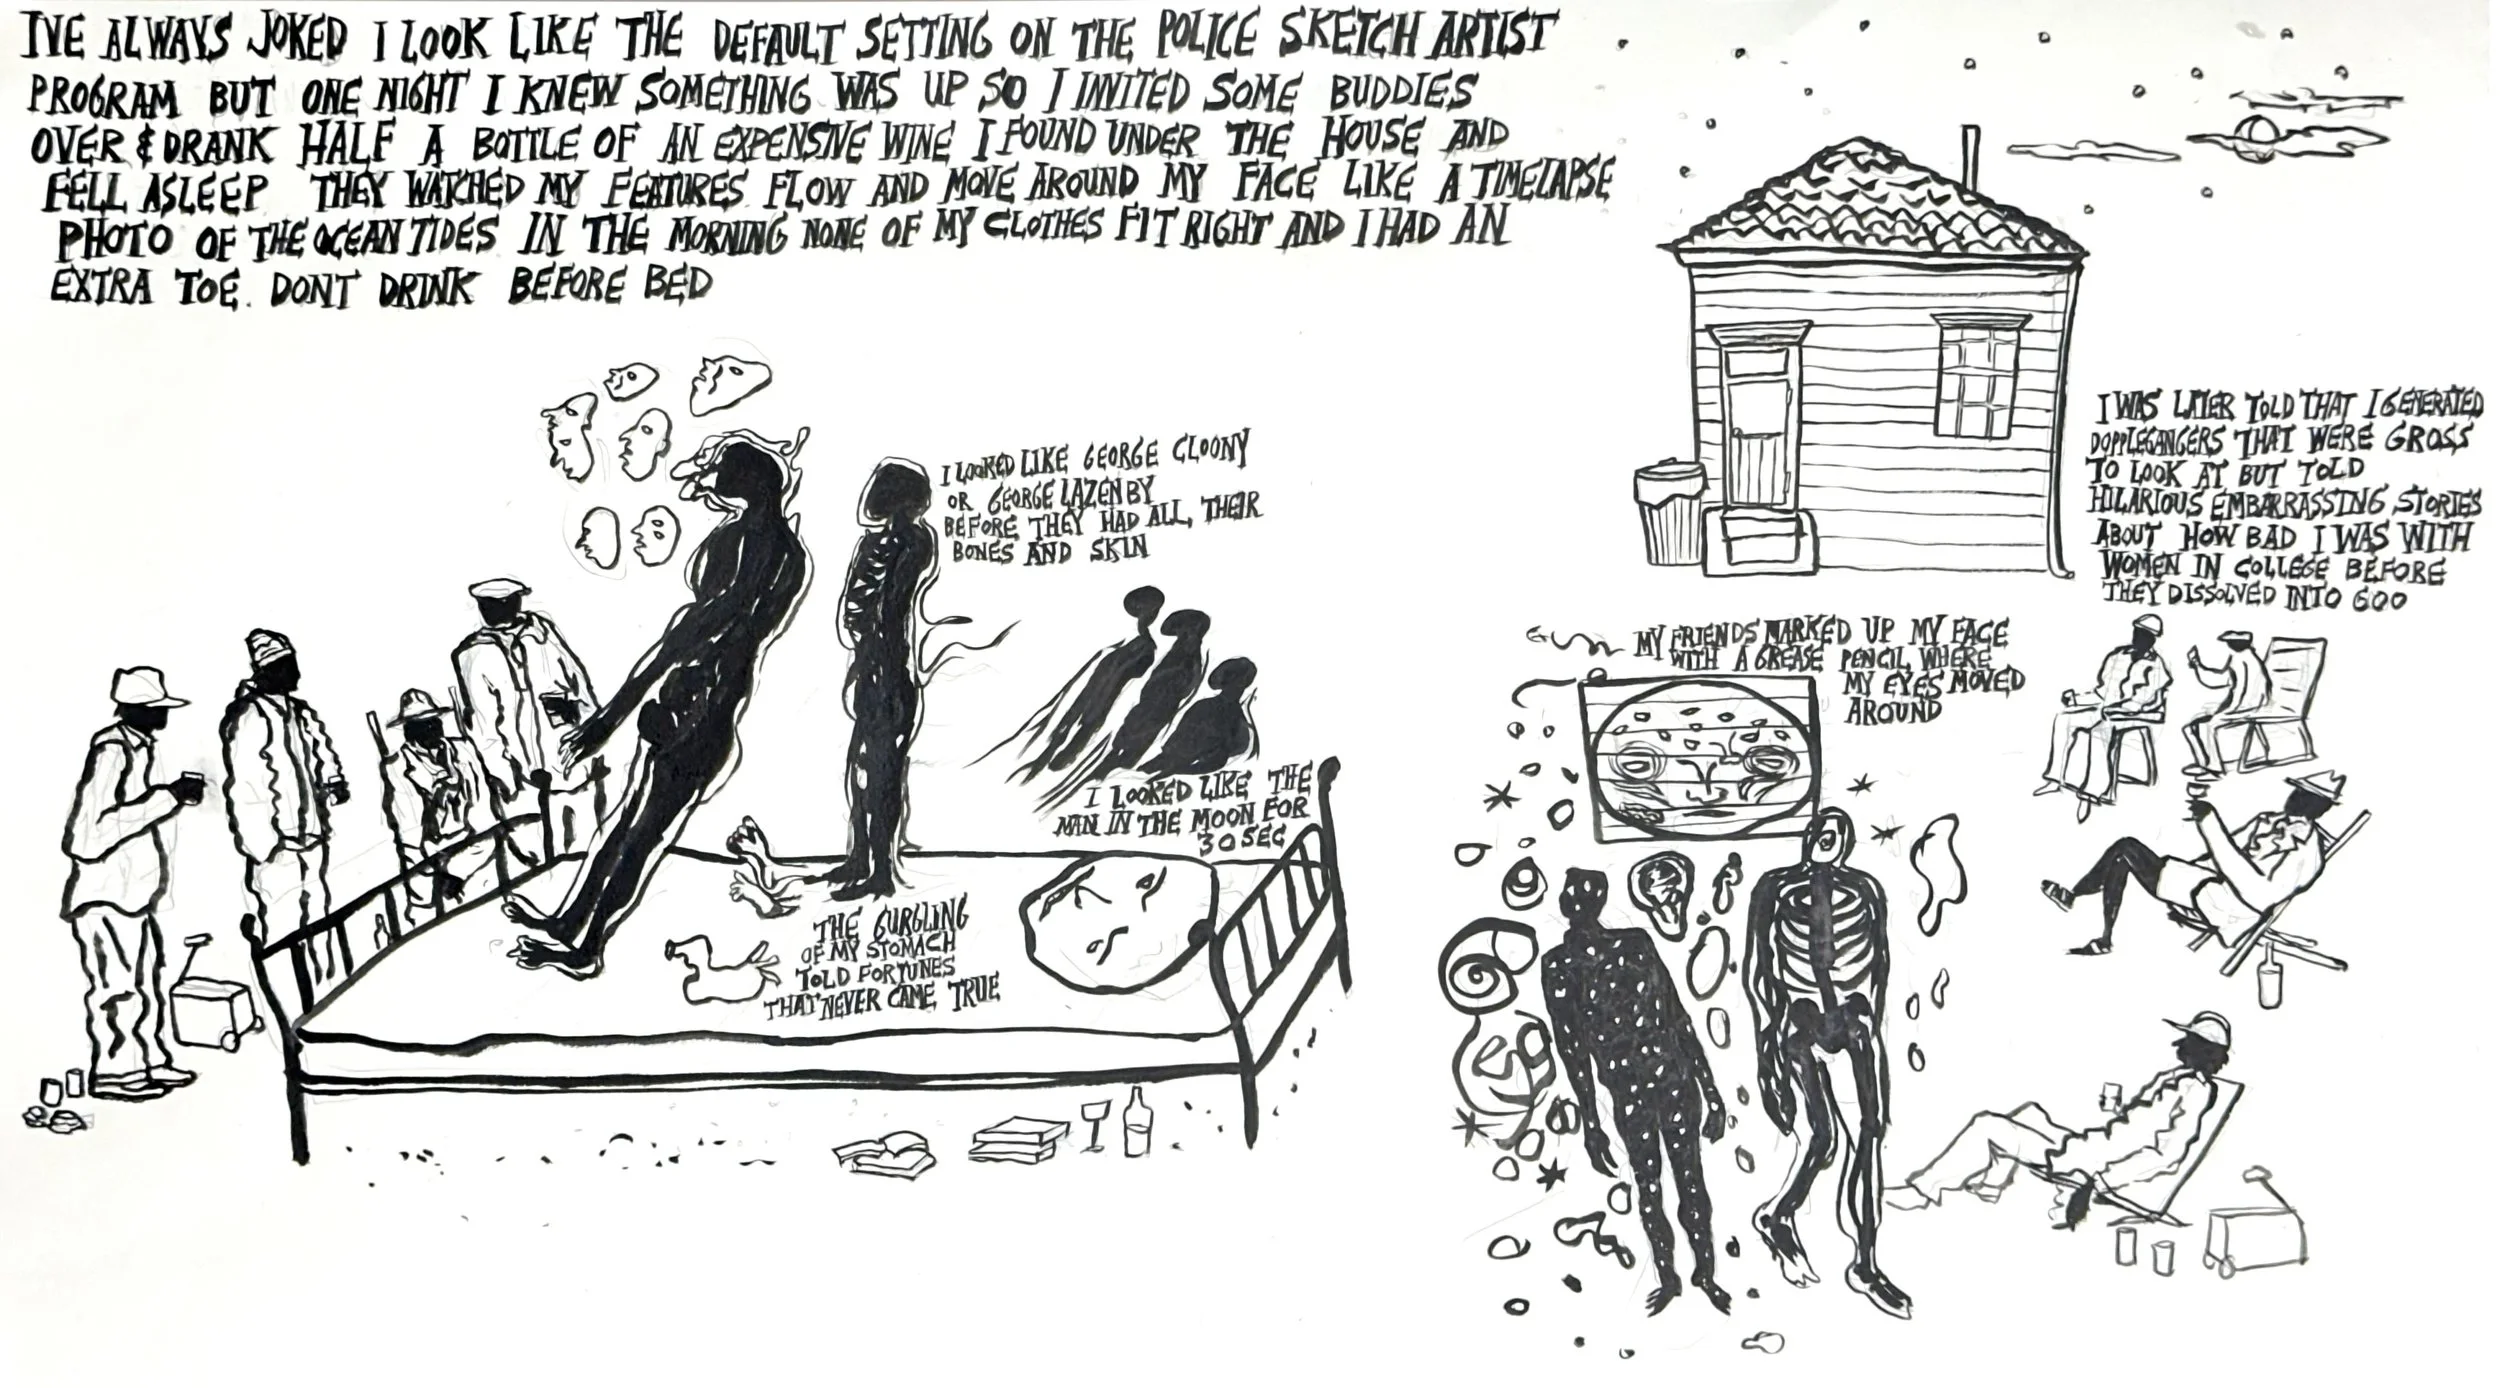 IVE ALWAYS JOKED I LOOK LIKE THE DEFAULT SETTING ON THE POLICE SKETCH ARTIST
PROGRAM BUT ONE NIGHT I KNEW SOMETHING WAS UP SO I INVITED SOME BUDDIES
OVER & DRANK HALF A BOTTLE OF AN EXPENSIVE WINE I FOUND UNDER THE HOUSE AND
FELL ASLEEP THEY WATCHED MY FEATURES FLOW AND MOVE AROUND MY FACE LIKE A TIMELAPSE
PHOTO OF THE OCEAN TIDES IN THE MORNING NONE OF MY CLOTHES FIT RIGHT AND I HAD AN
EXTRA TOE. DONT DRINK BEFORE BED
I LOOKED LIKE GEORGE CLOONY
OR GEORGE LAZENBY
BEFORE THEY HAD ALL THEIR
BONES AND SKIN
I LOOKED LIKE THE
MAN IN THE MOON FOR
30 SEC
THE GURGLING
OF MY STOMACH
TOLD FORTUNES
THAT NEVER CAME TRUE
I WAS LATER TOLD THAT I GENERATED
DOPPLEGANGERS THAT WERE GROSS
TO LOOK AT BUT TOLD
HILARIOUS EMBARRASSING STORIES
ABOUT HOW BAD I WAS WITH
WOMEN IN COLLEGE BEFORE
THEY DISSOLVED INTO GOO
MY FRIENDS MARKED UP MY FACE
WITH A GREASE PENCIL WHERE
MY EYES MOVED
AROUND